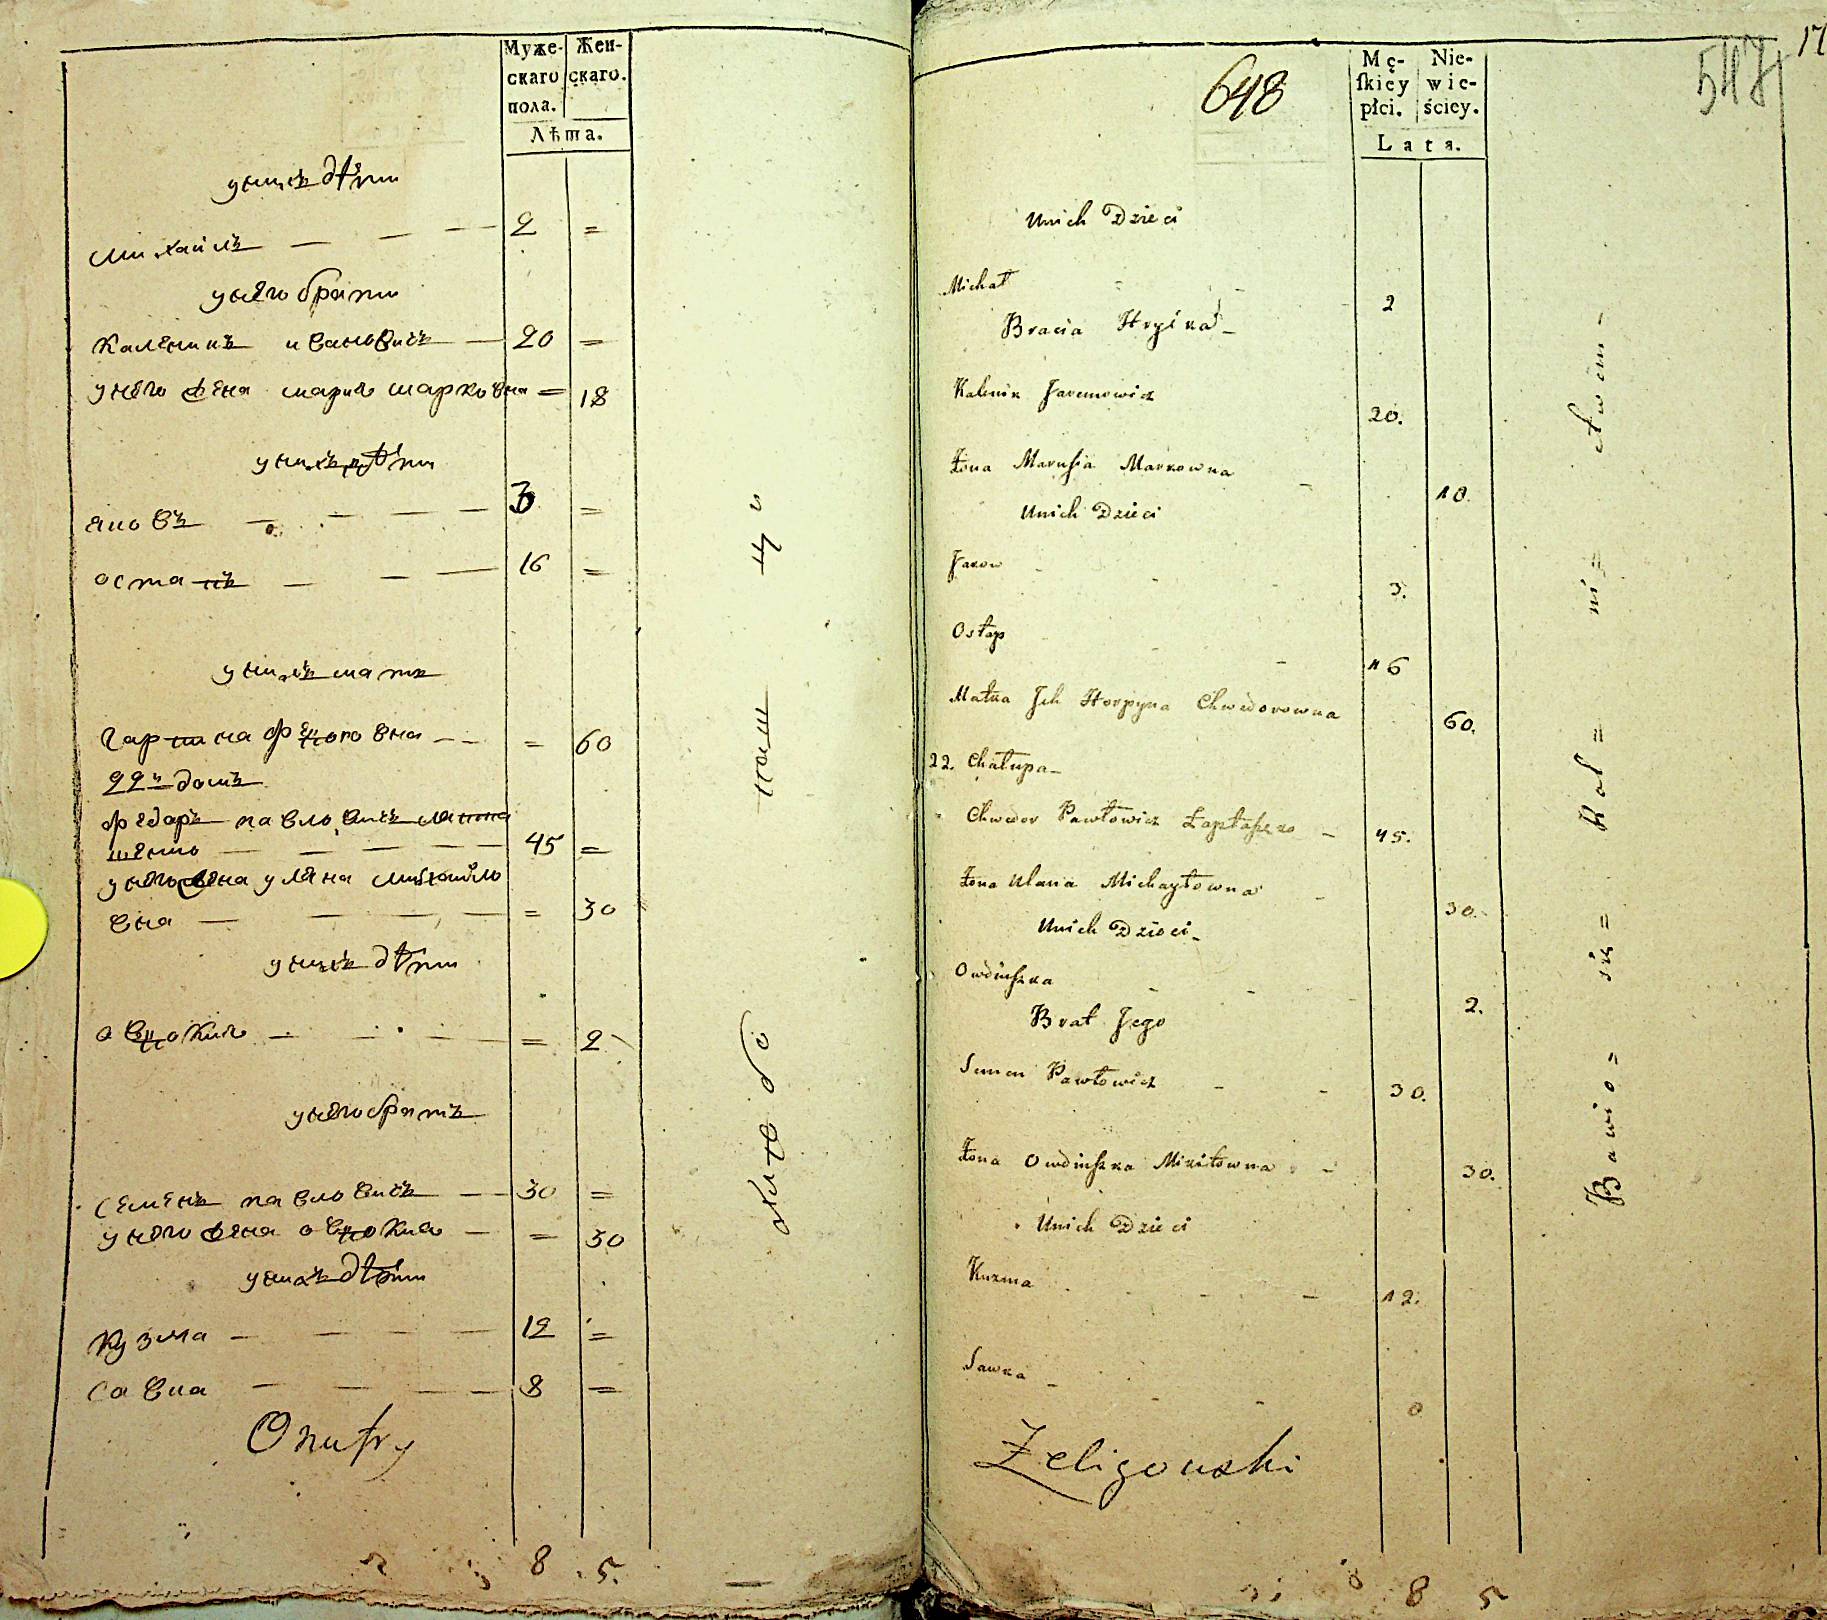 Муже- Жен-
скаго скаго.
пола.
Лѣта.
унихъ дѣти
михайлъ — — — 2 =
унего брати
каленикъ ивановичъ — 20 =
унего жена марья марковна = 18
унихъ дѣти
яковъ — — — — 3 =
остапъ — — — 16 =
унихъ мать
гарпина федоровна — — = 60
22й домъ
федоръ павловичъ лапта
шенко — — — — — 45 =
унего жена уляна михайло
вна — — — — = 30
унихъ дѣти
овдокия — — — = 2
унего братъ
семенъ павловичъ — — 30 =
унего жена овдокия — = 30
унихъ дѣти
кузма — — — — 12 =
савка — — — — 8 =
Onufry
8 5.
648
547
17
Mę- Nie-
ſkiey wie-
płci. ściey.
Lata.
Unich Dzieci
Michał 2
Bracia
Kalinik 20.
Żona Marusia Markowna 18
Unich Dzieci
Jakow 3.
Ostap 16
Matka Jch Horpyna Chwedorowna 60.
22. Chałupa
Chwedor Pawłowicz Łaptaszko 45.
Żona Ulana Michayłowna 30.
Unich Dzieci
Owdiuszka 2.
Brat Jego
Semen Pawłowicz 30.
Żona Owdiuszka Mikitowna 30.
Unich Dzieci
Kuzma 12.
Sawka 8
Żeligowski
8 5